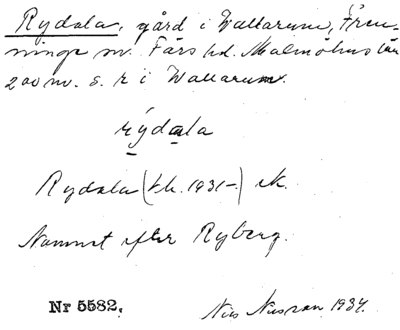 Rydala, gård i Vallarum, Fren-
ninge sn. Färs hd. Malmöhus län
200 m. s. k i Vallarum.
rýdala
Rydala (t.h. 1931-) ek.
Namnet efter Ryberg.
Nr 5582.
Nils Nilsson 1934.